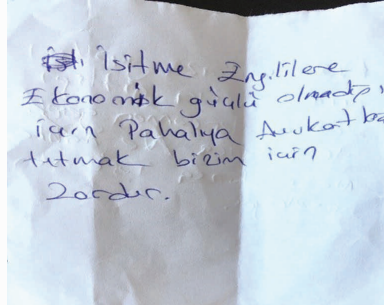 İşitme Engelilere
Ekonomik güçlü olmadığı
için Pahalıya Avukat
tutmak bizim için
Zordur.